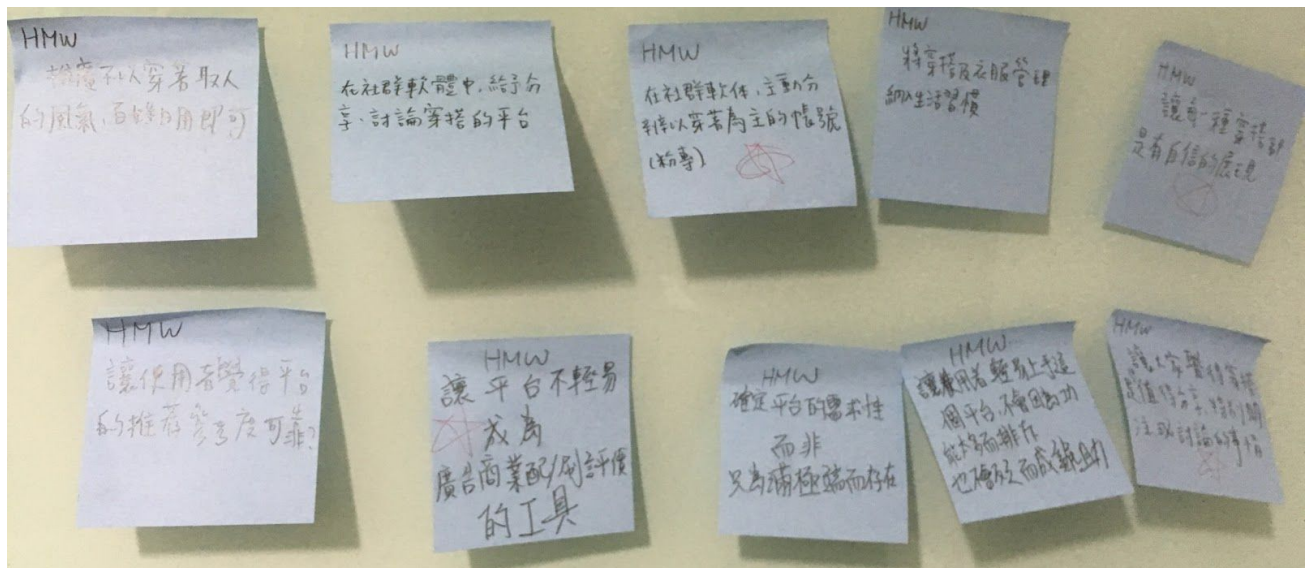 HMW
推廣不以穿著取人
的風氣,百變自用即可
HMW
在社群軟體中,給予分
享、討論穿搭的平台
HMW
在社群軟体,主動分
辨以穿著為主的帳號
(粉專)
HMW
將穿搭及衣服管理
納入生活習慣
HMW
讓每一種穿搭都
是有自信的展現
HMW
讓使用者覺得平台
的推薦參考度可靠?
HMW
讓平台不輕易
成為
廣告商業配/刷評價
的工具
HMW
確定平台的需求性
而非
只為滿極端而存在
HMW
讓使用者輕易上手這
個平台,不會因為功
能太多而排斥
也不會
HMW
讓大家覺得穿搭
是值得分享,特別關
注或討論的事情